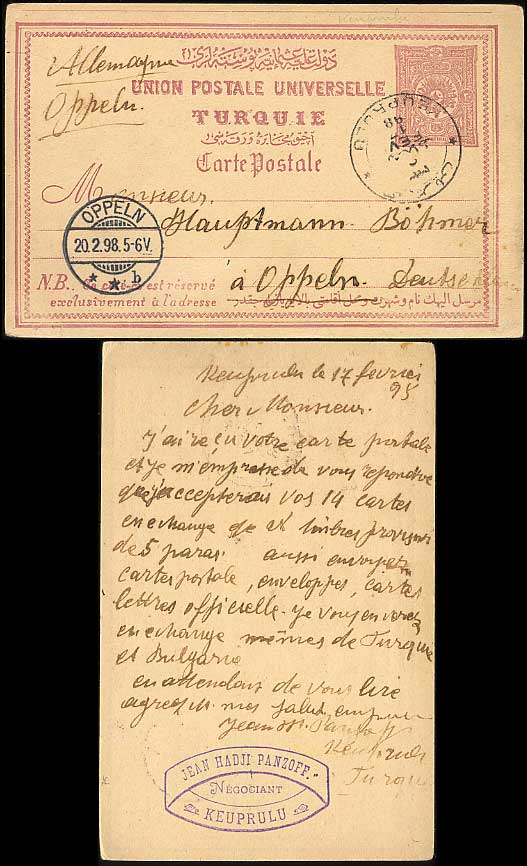 Keuprulu
Allemagne
Oppeln.
UNION POSTALE UNIVERSELLE
TURQUIE
Carte Postale
KEUPRULU
Monsieur
Hauptmann Böhmer
à Oppeln. Deutschland
OPPELN
20.2.98.5-6V.
* * b
N.B. Ce côté est réservé
exclusivement à l'adresse
Keuprulu le 17 fevrier
98
Cher Monsieur.
J'ai reçu votre carte postale
et je m'empresse de vous repondre
que j'accepterai vos 14 cartes
en echange de timbres provisoir
de 5 paras. aussi envoyez
cartes postale, enveloppes, cartes
lettres officielle. je vous enverez
en echange mêmes de Turquie
et Bulgarie
en attendant de vous lire
agreez m. mes salut
Jean H. Panzoff
Keuprulu
Turquie
JEAN HADJI PANZOFF.
NÉGOCIANT
KEUPRULU